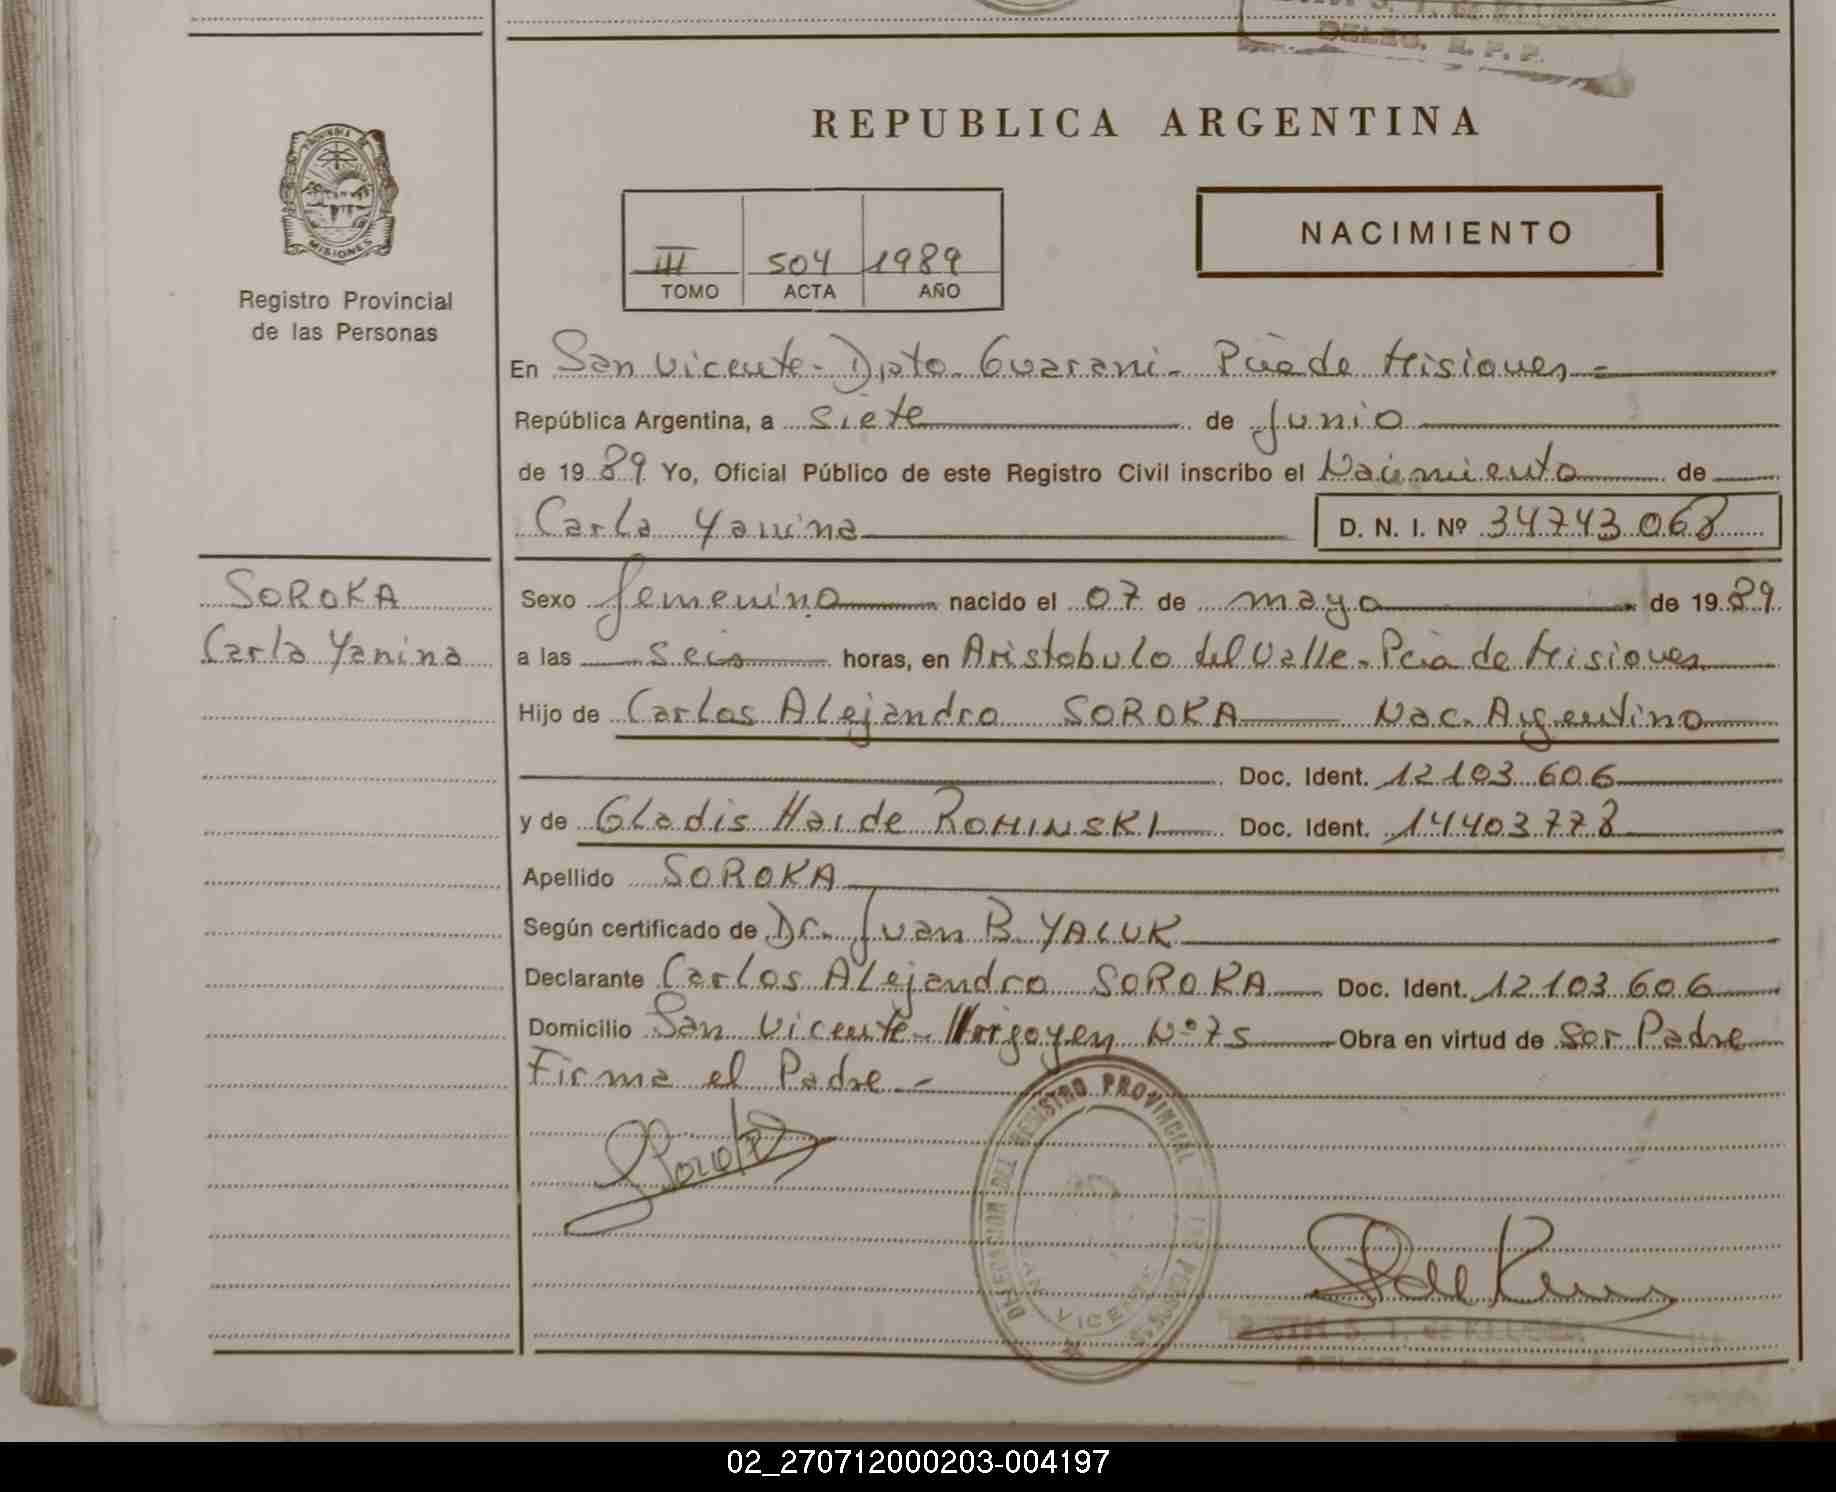 DELEG. R. P. P.
REPUBLICA ARGENTINA
PROVINCIA DE
MISIONES
Registro Provincial
de las Personas
III 504 1989
TOMO ACTA AÑO
NACIMIENTO
En San Vicente - Dpto. Guarani - Pcia de Misiones =
República Argentina, a siete de Junio
de 1989 Yo, Oficial Público de este Registro Civil inscribo el Nacimiento de
Carla Yanina D. N. I. Nº 34743068
SOROKA
Carla Yanina
Sexo femenino nacido el 07 de mayo de 1989
a las seis horas, en Aristobulo del Valle - Pcia de Misiones
Hijo de Carlos Alejandro SOROKA Nac. Argentino
Doc. Ident. 12103606
y de Gladis Haide ROMINSKI Doc. Ident. 14403778
Apellido SOROKA
Según certificado de Dr. Juan B. YALUK
Declarante Carlos Alejandro SOROKA Doc. Ident. 12103606
Domicilio San Vicente - Irigoyen Nº 75 Obra en virtud de Ser Padre
Firma el Padre -
Soroka
DELEGACION DEL REGISTRO PROVINCIAL
VICENTE
S. T. de KLUSKA
DELEG. R. P. P.
02_270712000203-004197